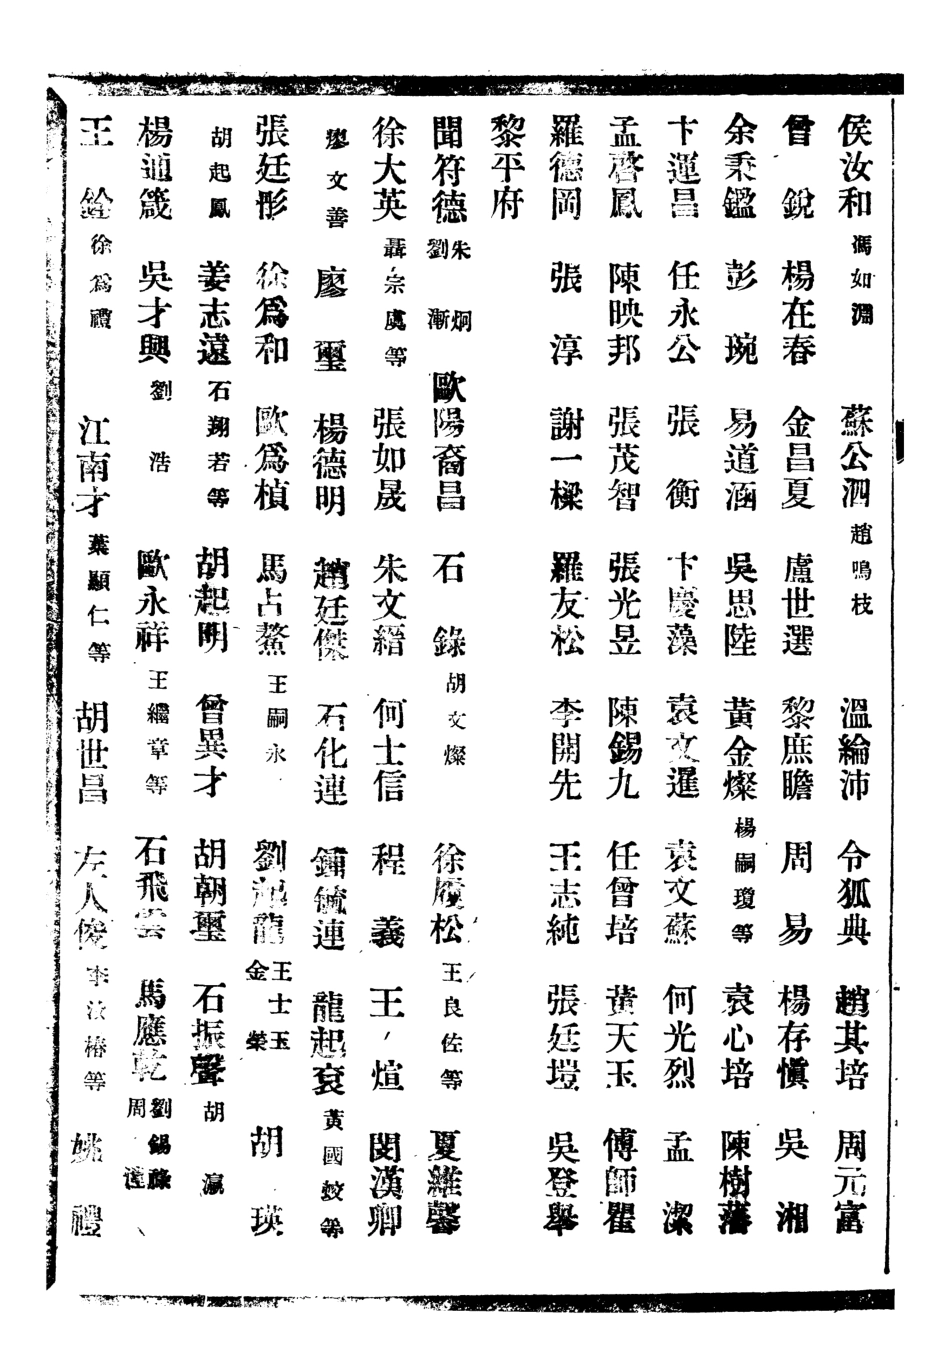 侯汝和 馮如淵 蘇公泗 趙鳴枝 溫綸沛 令狐典 趙其培 周元富
曾銳 楊在春 金昌夏 盧世選 黎庶瞻 周易 楊存愼 吳湘
余秉鑑 彭琬 易道涵 吳思陸 黃金燦 楊嗣瓊等 袁心培 陳樹藩
卞運昌 任永公 張衡 卞慶藻 袁文暹 袁文蘇 何光烈 孟潔
孟啓鳳 陳映邦 張茂智 張光昱 陳錫九 任曾培 黃天玉 傅師瞿
羅德岡 張淳 謝一樑 羅友松 李開先 王志純 張廷塏 吳登舉
黎平府
聞符德 朱炯 劉漸 歐陽裔昌 石錄 胡文燦 徐履松 王良佐等 夏維馨
徐大英 聶宗虞等 張如晟 朱文縉 何士信 程義 王煊 閔漢卿
廖文善 廖璽 楊德明 趙廷傑 石化連 鍾毓連 龍起袞 黃國蛟等
張廷彤 徐爲和 歐爲楨 馬占鰲 王嗣永 劉起龍 王士玉 金榮 胡瑛
胡起鳳 姜志遠 石翔若等 胡起明 曾異才 胡朝璽 石振聲 胡瀛
楊通箴 吳才興 劉浩 歐永祥 王繼章等 石飛雲 馬應乾 劉錫祿 周
王銓 徐爲禮 江南才 葉顯仁等 胡世昌 左人俊 李汝椿等 姚禮